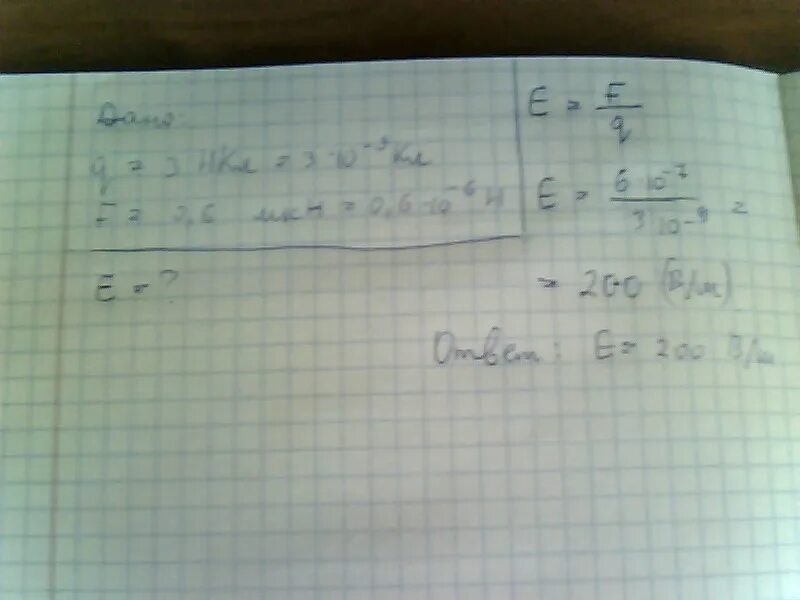 Дано:
q = 3 нКл = 3·10⁻⁹ Кл
F = 0,6 мкН = 0,6·10⁻⁶ Н
E = ?
E = F/q
E = 6·10⁻⁷/3·10⁻⁹ =
= 200 (В/м)
Ответ: E = 200 В/м